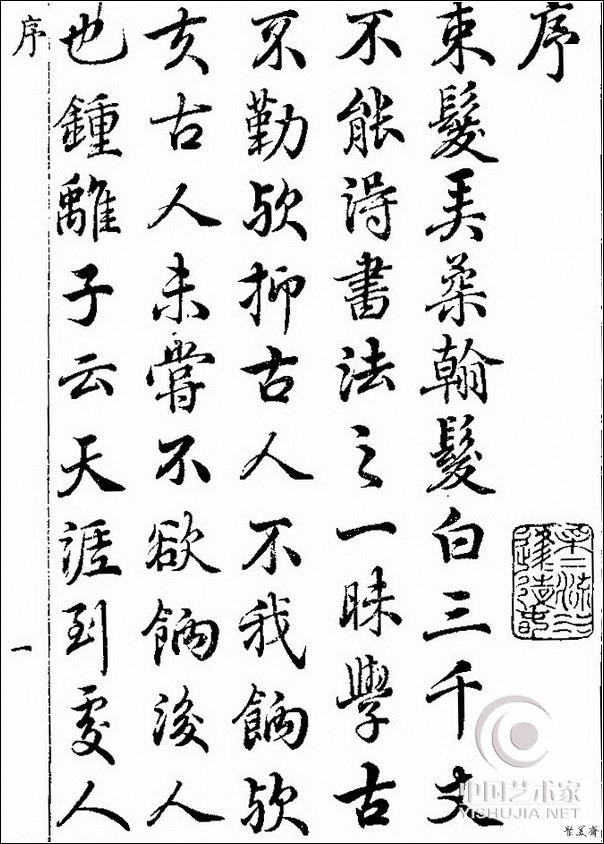 序
束髮弄柔翰髮白三千丈
不能得書法之一昧學古
不勤歟抑古人不我餉歟
亥古人未嘗不欲餉後人
也鍾離子云天涯到處人
序
一
中国艺术家
YISHUJIA.NET